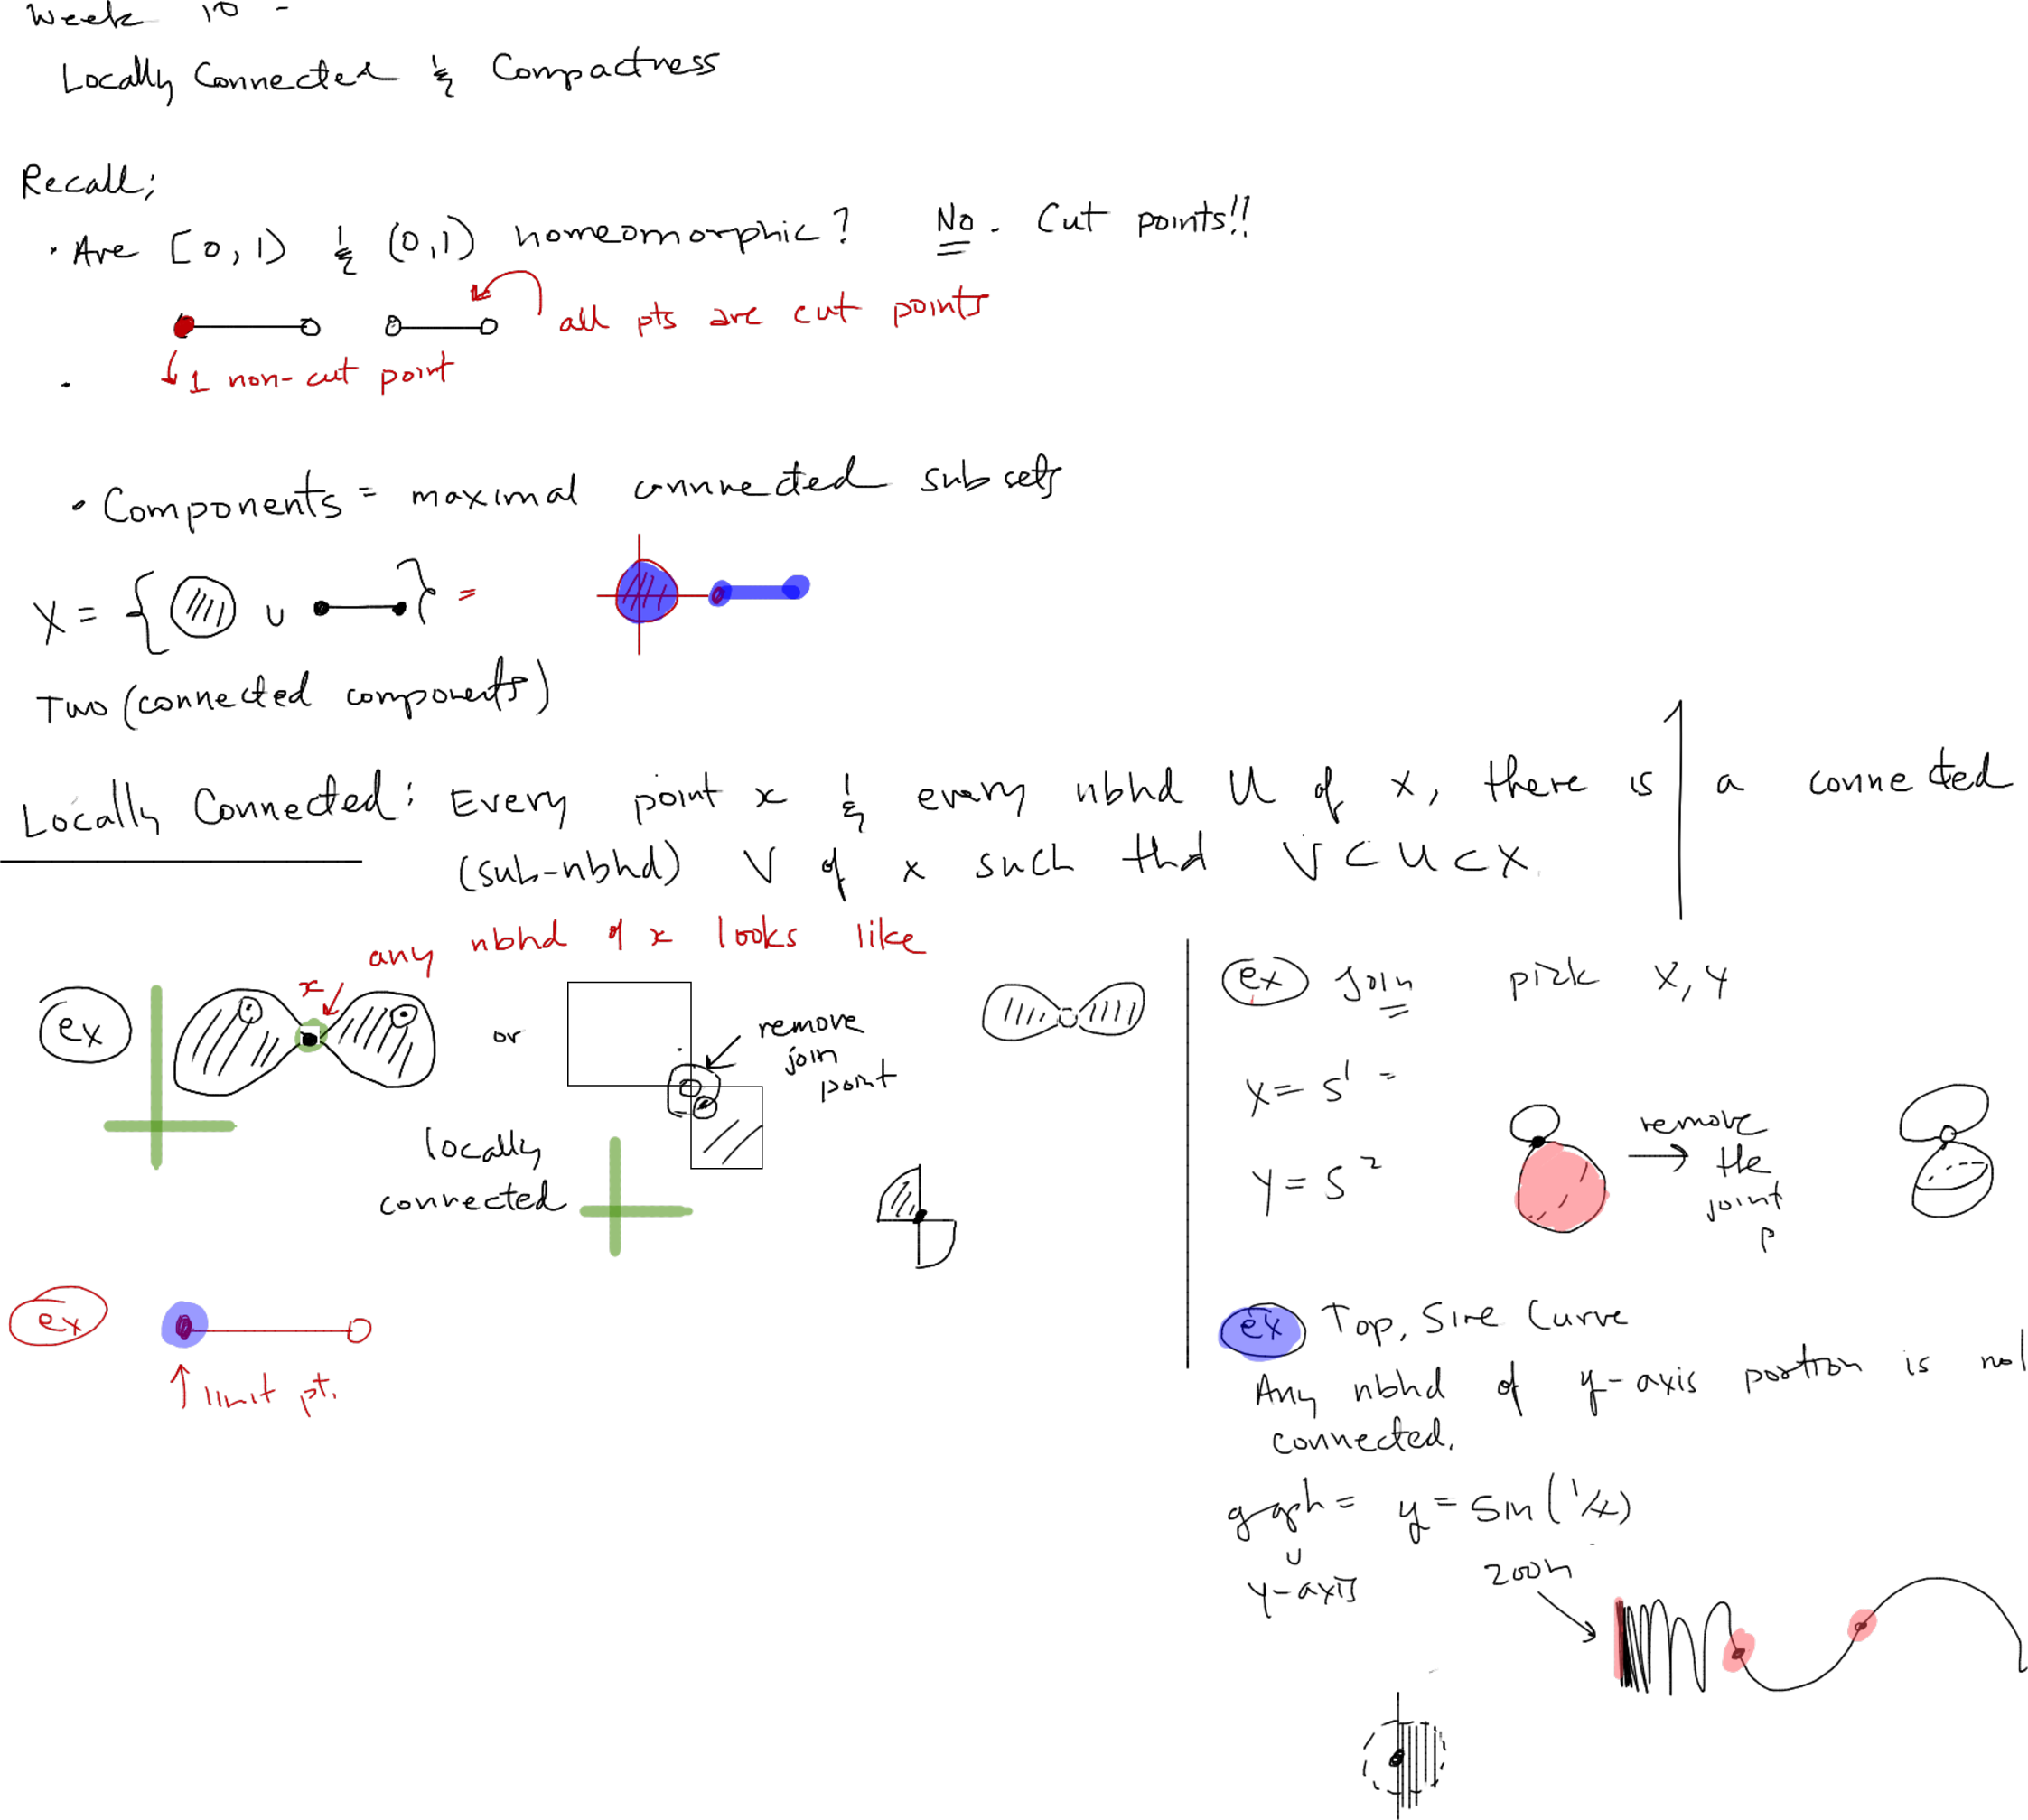 Week 10 -
Locally Connected & Compactness
Recall:
• Are [0, 1) & (0, 1) homeomorphic? No. Cut points!!
all pts are cut points
• 1 non-cut point
• Components = maximal connected subsets
X = { ∪ } =
Two (connected components)
Locally Connected: Every point x & every nbhd U of x, there is a connected
(sub-nbhd) V of x such that V ⊂ U ⊂ X.
any nbhd of x looks like
ex
x
or
remove
join
point
locally
connected
ex
limit pt.
ex Join pick X, Y
X = S¹ =
Y = S²
remove
the
joint
p
ex Top. Sine Curve
Any nbhd of y-axis portion is not
connected.
graph = y = sin(1/x)
∪
y-axis
zoom